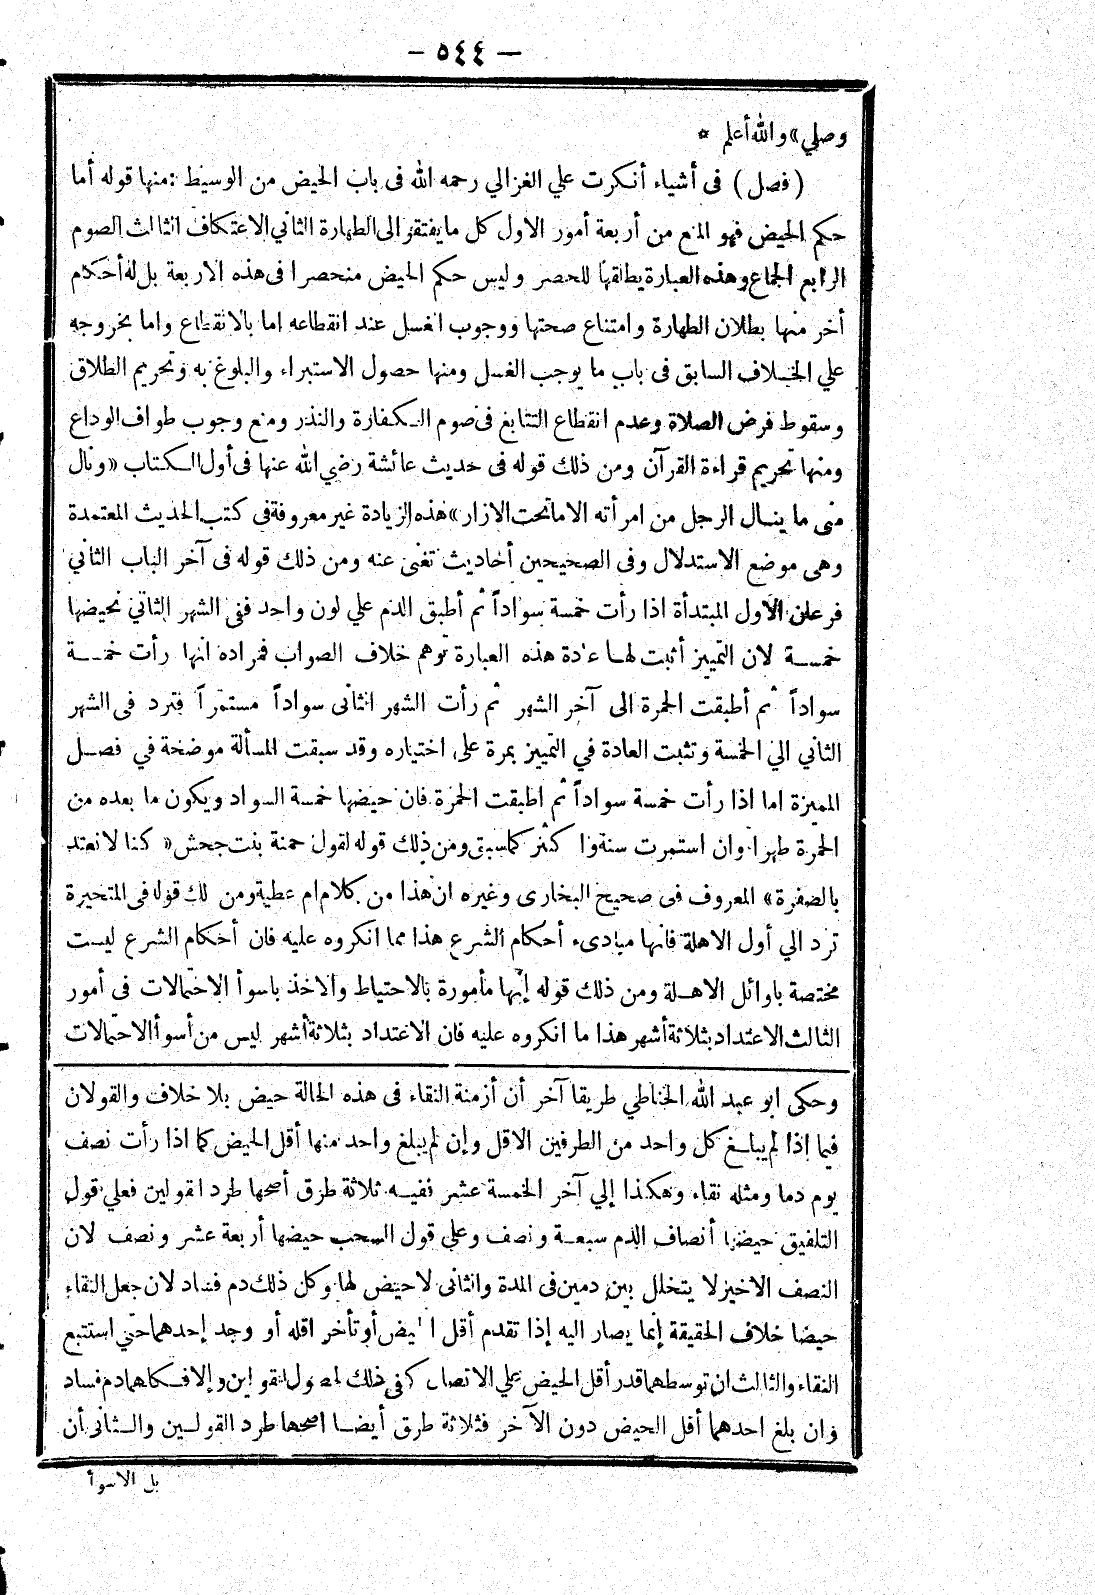 — ٥٤٤ —
وصلي» والله أعلم *
(فصل) فى أشياء أنكرت علي الغزالي رحمه الله فى باب الحيض من الوسيط : منها قوله أما
حكم الحيض فهو المنع من أربعة أمور الاول كل ما يفتقر الى الطهارة الثاني الاعتكاف الثالث الصوم
الرابع الجماع وهذه العبارة يطلقها للحصر وليس حكم الحيض منحصرا فى هذه الاربعة بل له أحكام
أخر منها بطلان الطهارة وامتناع صحتها ووجوب الغسل عند انقطاعه اما بالانقطاع واما بخروجه
علي الخلاف السابق فى باب ما يوجب الغسل ومنها حصول الاستبراء والبلوغ به وتحريم الطلاق
وسقوط فرض الصلاة وعدم انقطاع التتابع فى صوم الكفارة والنذر ومنع وجوب طواف الوداع
ومنها تحريم قراءة القرآن ومن ذلك قوله فى حديث عائشة رضي الله عنها فى أول الكتاب «ونال
منى ما ينال الرجل من امرأته الا ما تحت الازار» هذه الزيادة غير معروفة فى كتب الحديث المعتمدة
وهى موضع الاستدلال وفى الصحيحين أحاديث تغنى عنه ومن ذلك قوله فى آخر الباب الثاني
فرعان الأول المبتدأة اذا رأت خمسة سواداً ثم أطبق الدم علي لون واحد ففى الشهر الثاني نحيضها
خمسة لان التمييز أثبت لها عادة هذه العبارة توهم خلاف الصواب فمراده انها رأت خمسة
سواداً ثم أطبقت الحمرة الى آخر الشهر ثم رأت الشهر الثانى سواداً مستمراً فترد فى الشهر
الثاني الي الخمسة وتثبت العادة في التمييز بمرة على اختياره وقد سبقت المسألة موضحة في فصل
المميزة اما اذا رأت خمسة سواداً ثم اطبقت الحمرة فان حيضها خمسة السواد ويكون ما بعده من
الحمرة طهرا وان استمرت سنة وا كثر كما سبق ومن ذلك قوله لقول حمنة بنت جحش «كنا لا نعتد
بالصفرة» المعروف فى صحيح البخارى وغيره ان هذا من كلام ام عطية ومن لك قوله فى المتحيرة
ترد الي أول الاهلة فانها مبادىء أحكام الشرع هذا مما انكروه عليه فان أحكام الشرع ليست
مختصة باوائل الاهلة ومن ذلك قوله إنها مأمورة بالاحتياط والاخذ باسوأ الاحتمالات فى أمور
الثالث الاعتداد بثلاثة أشهر هذا ما انكروه عليه فان الاعتداد بثلاثة أشهر ليس من أسوأ الاحتمالات
وحكى ابو عبد الله الحناطي طريقا آخر أن أزمنة النقاء فى هذه الحالة حيض بلا خلاف والقولان
فيما إذا لم يبلغ كل واحد من الطرفين الاقل وإن لم يبلغ واحد منها أقل الحيض كما اذا رأت نصف
يوم دما ومثله نقاء وهكذا إلي آخر الخمسة عشر ففيه ثلاثة طرق أصحها طرد القولين فعلي قول
التلفيق حيضها أنصاف الدم سبعة ونصف وعلى قول السحب حيضها أربعة عشر ونصف لان
النصف الاخير لا يتخلل بين دمين فى المدة والثانى لا حيض لها وكل ذلك دم فساد لان جعل النقاء
حيضا خلاف الحقيقة إنما يصار اليه إذا تقدم أقل ا يض أو تأخر اقله أو وجد إحدهما حتي استتبع
النقاء والثالث ان توسطهما قدر أقل الحيض علي الاتصال كفى ذلك لحصول القولين وإلا فكلاهما دم فساد
وان بلغ احدهما أقل الحيض دون الآخر فثلاثة طرق أيضا اصحها طرد القولين والثانى أن
بل الاسوأ